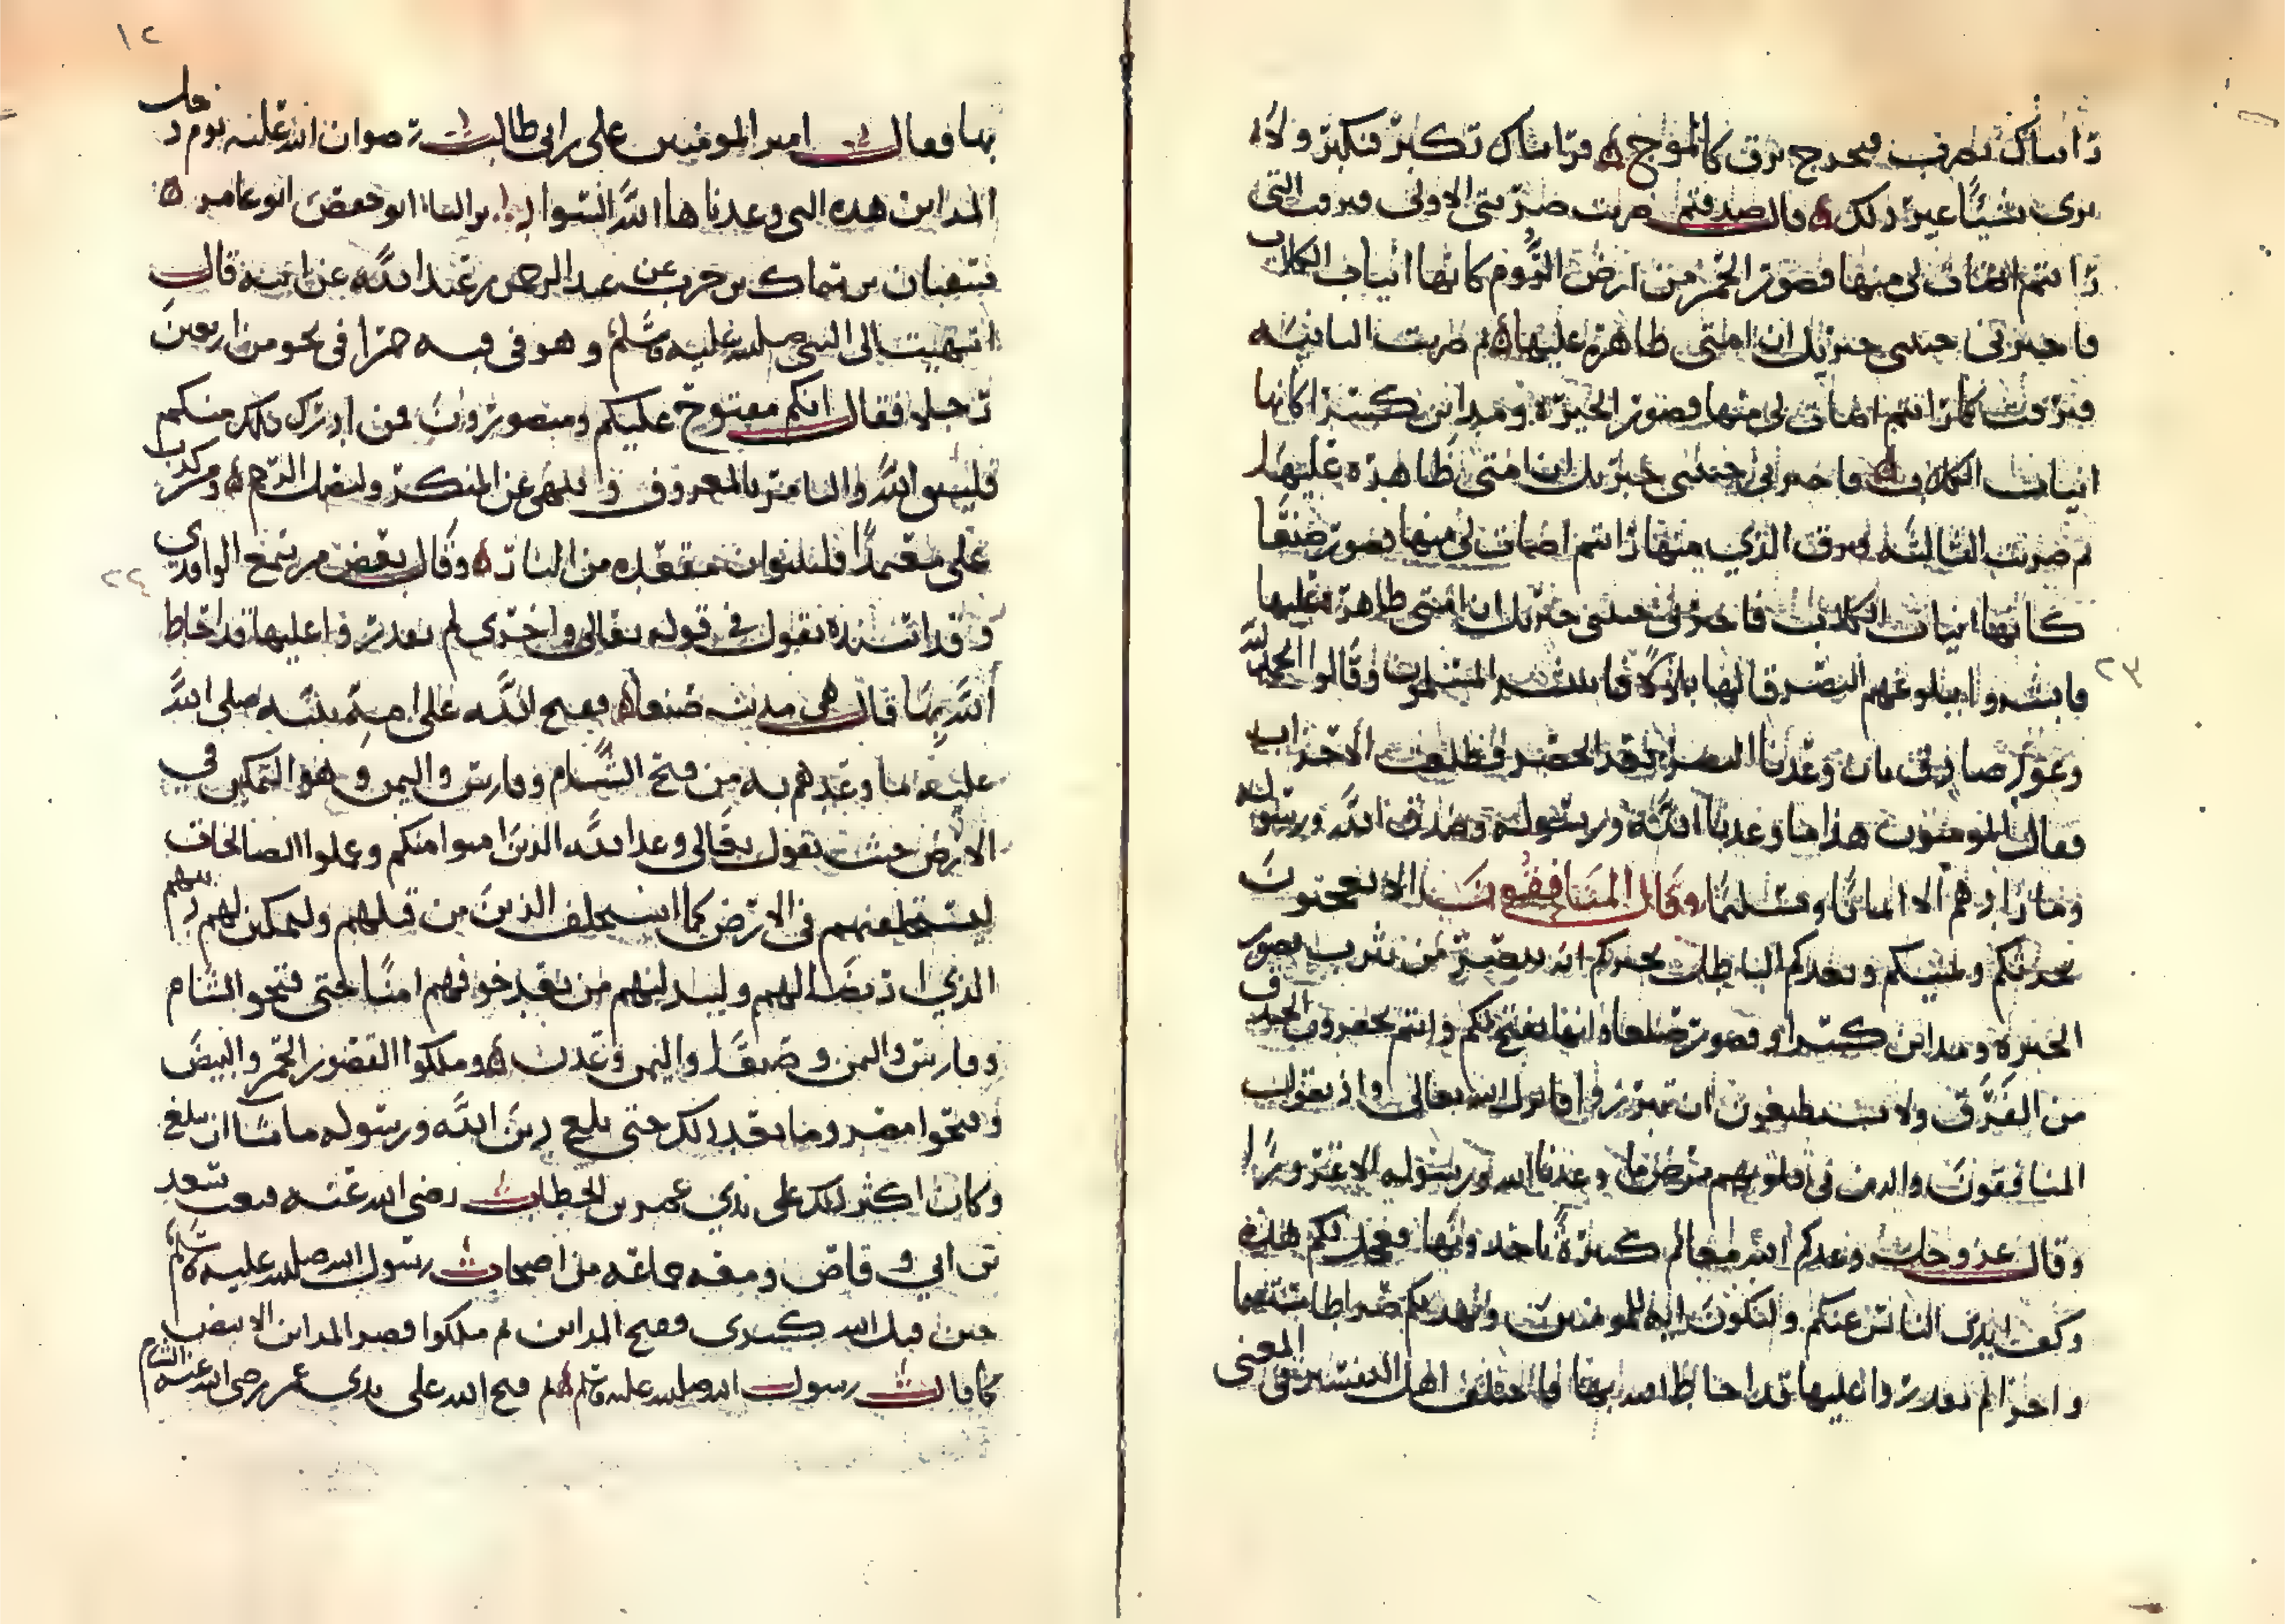 رايناك تضرب فيخرج برق كالموج ورايناك تكبر فنكبر ولا
نرى شيئا غير ذلك قال صدقتم ضربت ضربتي الاولى فبرق التي
رايتم اضات لي منها قصور الحمر من ارض الروم كانها انياب الكلاب
فاخبرني جبريل ان امتي ظاهرة عليها ثم ضربت الثانية
فبرقت كما رايتم اضات لي منها قصور الحيرة ومداين كسرا كانها
انياب الكلاب فاخبرني جبريل ان امتي ظاهرة عليها
ثم ضربت الثالثة فبرق الذي منها رايتم اضات لي منها قصور صنعا
كانها انياب الكلاب فاخبرني جبريل ان امتي ظاهرة عليها
فابشروا يبلوغهم النصر قالها ثلاثا فاستبشر المسلمون وقالوا الحمد لله
وعد صادق بان وعدنا النصر بعد الحصر فطلعت الاحزاب
فقال المومنون هذا ما وعدنا الله ورسوله وصدق الله ورسوله
وما زادهم الا ايمانا وتسليما وقال المنافقون الا تعجبون
يحدثكم ويمنيكم ويعدكم الباطل يخبركم انه يبصر من يثرب قصور
الحيرة ومداين كسرا وقصور صنعا وانها تفتح لكم وانتم تحفرون الخندق
من الفرق ولا تستطيعون ان تبرزوا فانزل الله تعالى واذ يقول
المنافقون والذين في قلوبهم مرض ما وعدنا الله ورسوله الا غرورا
وقال عز وجل وعدكم الله مغانم كثيرة تاخذونها فعجل لكم هذه
وكف ايدي الناس عنكم ولتكون اية للمومنين ويهديكم صراطا مستقيما
واخرا لم تقدروا عليها قد احاط الله بها فاختلف اهل التفسير في المعنى
٢٣
١٢
بها فقال امير المومنين علي بن ابي طالب رضوان الله عليه يوم دخل
المداين هذه التي وعدنا ها الله
سفيان بن سماك بن حرب عن عبد الرحمن بن عبد الله عن ابيه قال
انتهيت الى النبي صلى الله عليه وسلم وهو في قبه حمرا في نحو من اربعين
رجلا فقال انكم مفتوح عليكم ومنصورون فمن ادرك ذلك منكم
فليتق الله واليامر بالمعروف ولينهى عن المنكر وليصل الرحم ومن كذب
علي متعمدا فليتبوا مقعده من النار وقال بعض من سمع الواقدي
وقد اسنده يقول في قوله تعالى واخرى لم تقدروا عليها قد احاط
الله بها قال هي مدينة صنعا ففتح الله على امة نبيه صلى الله
عليه ما وعدهم به من فتح الشام وفارس واليمن وهو التمكين في
الارض حيث يقول تعالى وعد الله الذين امنوا منكم وعملوا الصالحات
ليستخلفنهم في الارض كما استخلف الذين من قبلهم وليمكنن لهم دينهم
الذي ارتضا لهم وليبدلنهم من بعد خوفهم امنا حتى فتحوا الشام
وفارس واليمن وصنعا واليمن وعدن وملكوا القصور الحمر والبيض
وفتحوا مصر وما بعد ذلك حتى بلغ دين الله ورسوله ما شا ان يبلغ
وكان اكثر ذلك على يدي عمر بن الخطاب رضي الله عنه فبعث سعد
بن ابي وقاص ومعه جماعه من اصحاب رسول الله صلى الله عليه وسلم
حين قتل الله كسرى وفتح المداين ثم ملكوا قصر المداين الابيض
كما قال رسول الله صلى الله عليه وسلم ثم فتح الله على يدي عمر رضي الله عنه الشام
٢٢